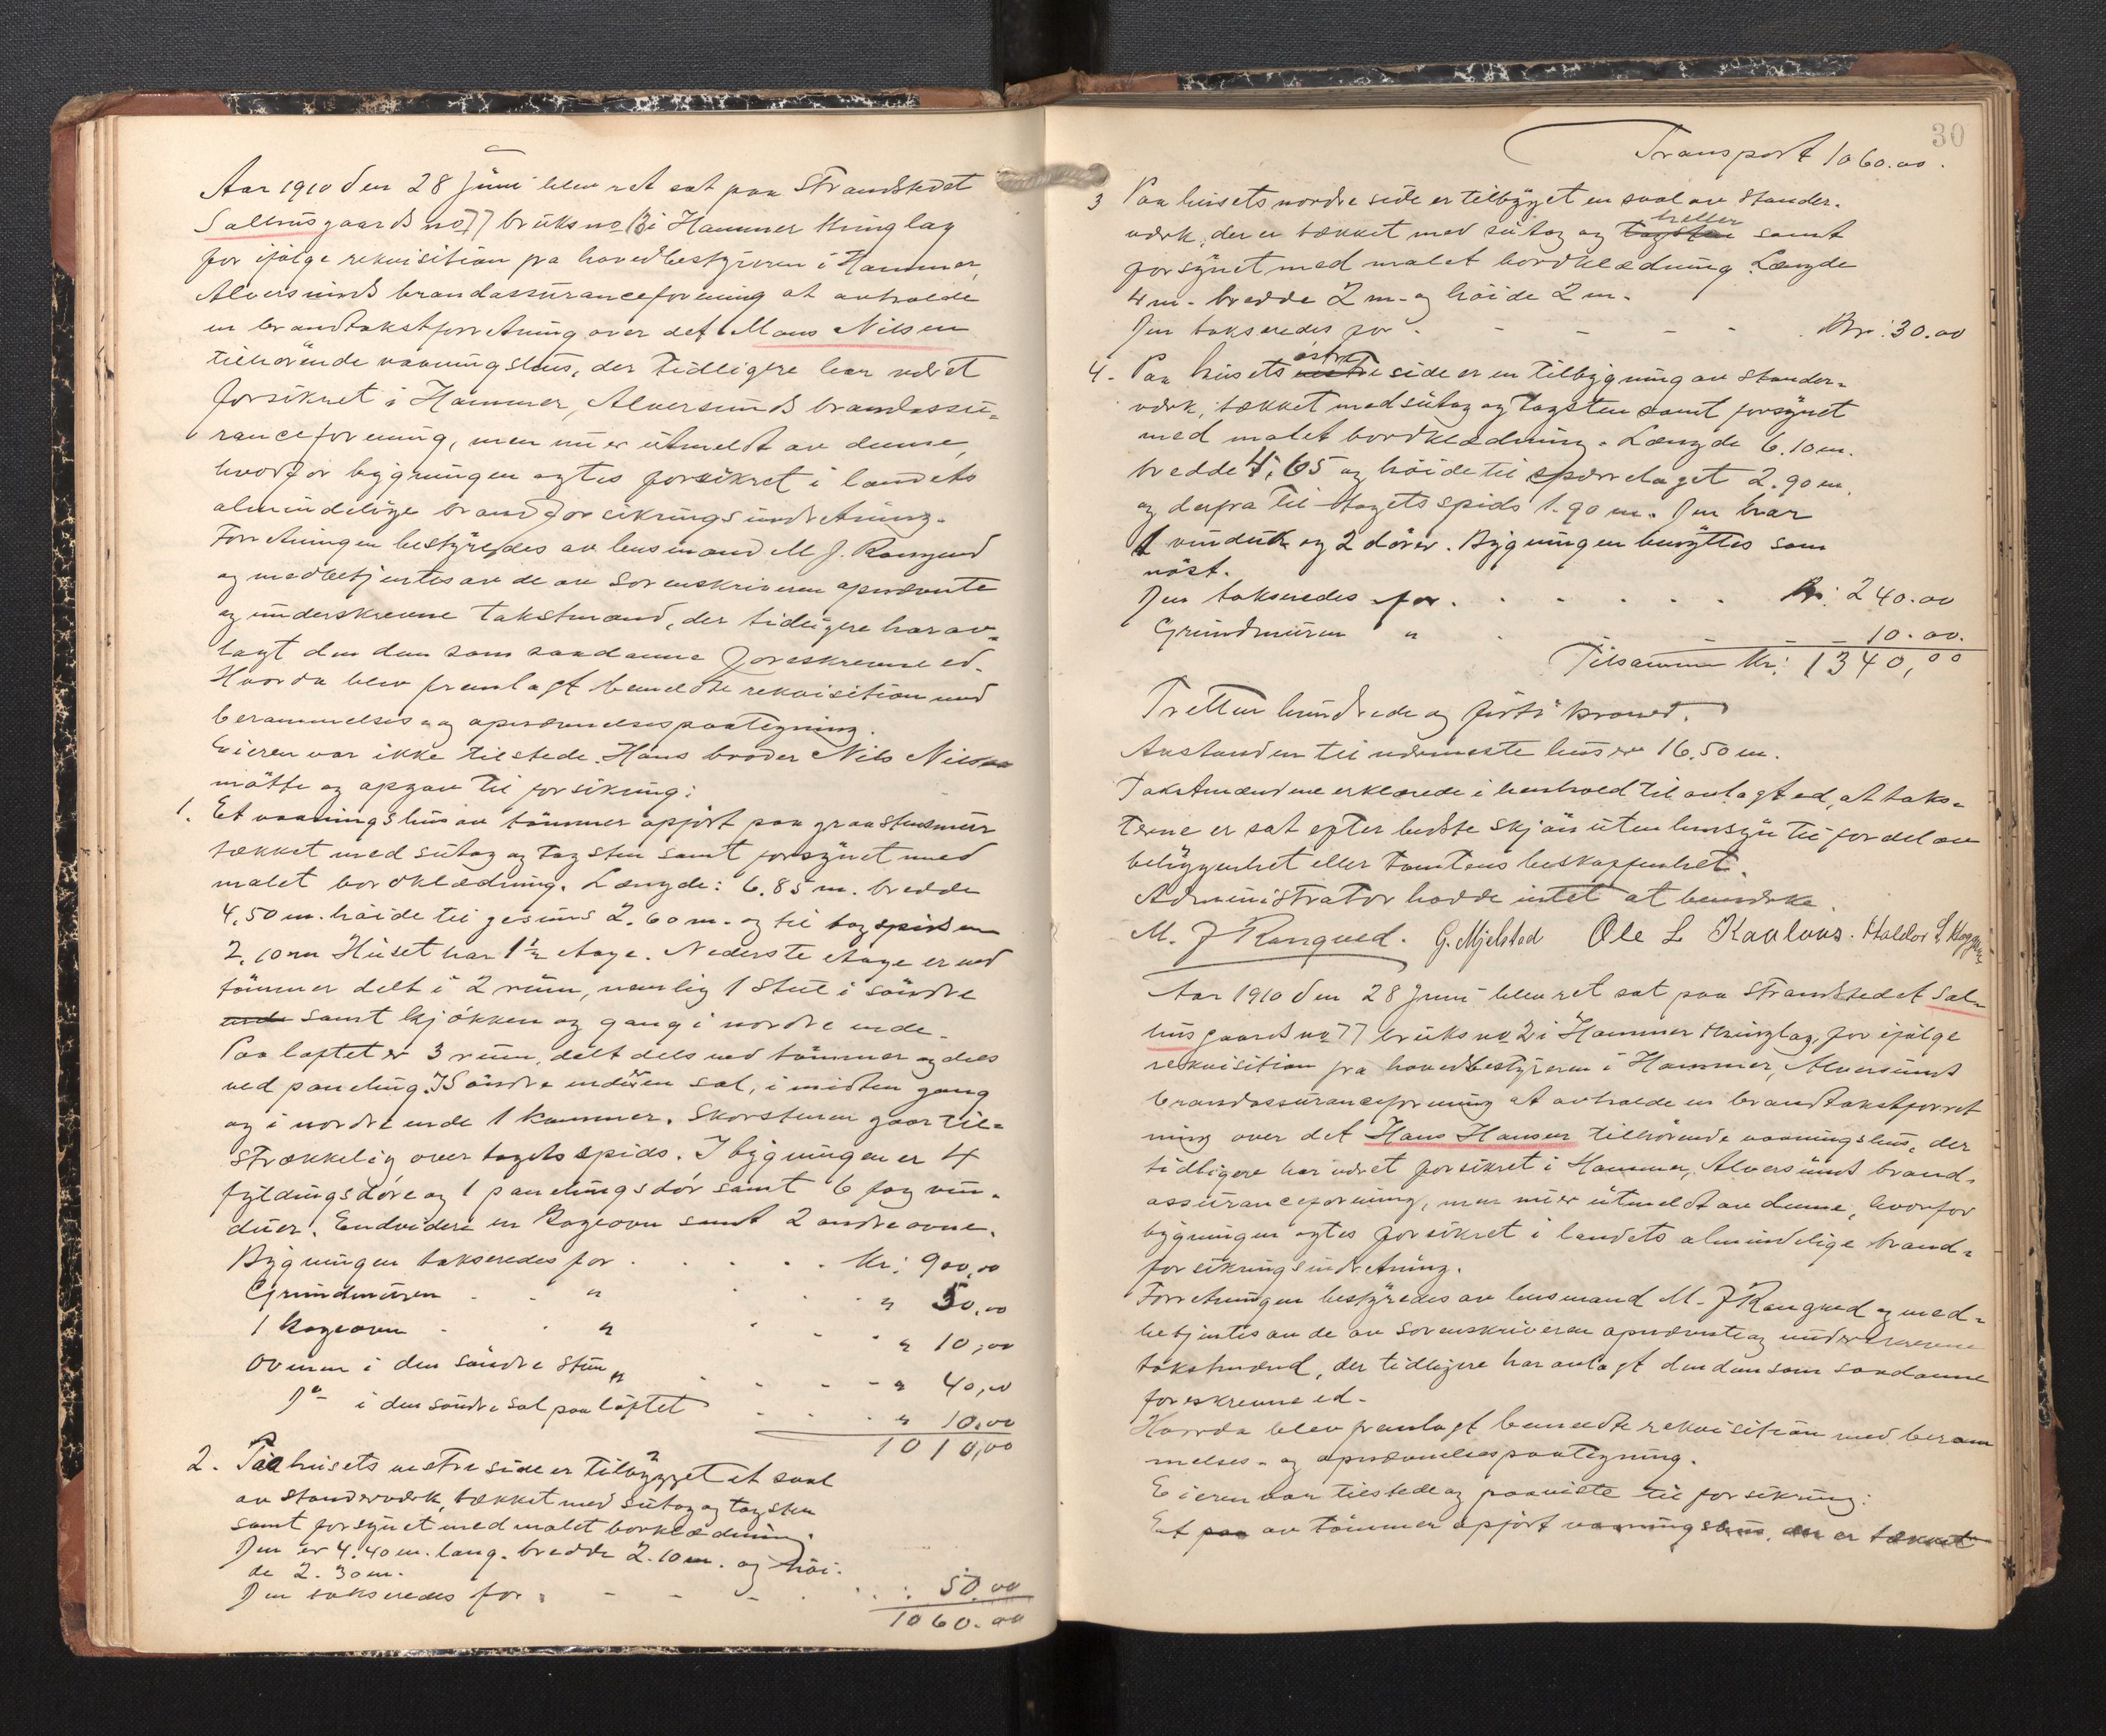 Aar 1910 den 28 Juni blev ret sat paa strandstedet
Salhus gaards no 77 bruks no 13 i Hammer thinglag
for ifølge rekvisition fra hovedbestyreren i Hammer,
Alversunds brandassuranceforening at avholde
en brandtakstforretning over det Mons Nilsen
tilhørende vaaningshus, der tidligere har været
forsikret i Hammer, Alversunds brandassu-
ranceforening, men nu er utmeldt av denne,
hvorfor bygningen agtes forsikret i landets
almindelige brandforsikringsindretning.
Forretningen bestyredes av lensmand M J. Rongved
og medbetjentes av de av sorenskriveren opnævnte
og underskrevne takstmænd, der tidligere har av-
lagt den dem som saadanne foreskrevne ed.
Hvorda blev fremlagt bemeldte rekvisition med
berammelses- og opnævnelsespaategning.
Eieren var ikke tilstede. Hans broder Nils Nilsen
møtte og opgav til forsikring:
1. Et vaaningshus av tømmer opført paa graastensmur
tækket med sutag og tagsten samt forsynet med
malet bordklædning. Længde: 6.85 m. bredde
4.50 m. høide til gesims 2.60 m. og til tagspidsen
2.10 m Huset har 1½ etage. Nederste etage er ved
tømmer delt i 2 rum, nemlig 1 stue i søndre
ende samt kjøkken og gang i nordre ende.
Paa loftet er 3 rum, delt dels ved tømmer og dels
ved paneling. I søndre ende er en sal, i midten gang
og i nordre ende 1 kammer. Skorstenen gaar til-
strækkelig over tagets spids. I bygningen er 4
fyldingsdøre og 1 panelingsdør samt 6 fag vin-
duer. Endvidere en kogeovn samt 2 andre ovne.
Bygningen takseredes for . . . . . Kr: 900,00
Grundmuren . . " . . . " 50,00
1 kogeovn . . " . . . " 10,00
Ovnen i den søndre stue " . . . " 40,00
Do i den søndre sal paa loftet . . . " 10,00
1010,00
2. Paa husets vestre side er tilbygget et sval
av standerværk, tækket med sutag og tagsten
samt forsynet med malet borklædning.
Den er 4.40 m. lang. bredde 2.10 m. og høi-
de 2.30 m.
Den takseredes for . - - - . . : 50.00
1060.00
30
Transport 1060.00.
3 Paa husets nordre side er tilbygget en sval av stander-
heller
værk, der er tækket med sutag og tagsten samt
forsynet med malet bordklædning. Længde
4 m. bredde 2 m. og høide 2 m.
Den takseredes for . - - - - . Kr: 30.00
østre
4. Paa husets vestre side er en tilbygning av stander-
værk, tækket med sutag og tagsten samt forsynet
med malet bordklædning. Længde 6.10 m.
bredde 4,65 og høide til sperrelaget 2.90 m.
og derfra til tagets spids 1.90 m. Den har
1 vindu og 2 dører. Bygningen benyttes som
nøst.
Den takseredes for . . . . . . Kr: 240.00
Grundmuren " . - - - 10.00.
Tilsammen Kr: 1340,00
Tretten hundrede og førti kroner.
Avstanden til nærmeste hus er 16.50 m.
Takstmændene erklærede i henhold til avlagt ed, at taks-
terne er sat efter bedste skjøn uten hensyn til fordel av
beliggenhet eller tomtens beskaffenhet.
Administrator hadde intet at bemærke.
M. J Rongved. G. Mjelstad Ole L Kaalaas. Haldor
Aar 1910 den 28 Juni blev ret sat paa strandstedet Sal-
hus gaards no 77 bruks no 2 i Hammer thinglag, for ifølge
rekvisition fra hovedbestyreren i Hammer, Alversunds
brandassuranceforening at avholde en brandtakstforret
ning over det Hans Hansen tilhørende vaaningshus, der
tidligere har været forsikret i Hammer, Alversunds brand-
assuranceforening, men nu er utmeldt av denne, hvorfor
bygningen agtes forsikret i landets almindelige brand-
forsikringsindretning.
Forretningen bestyredes av lensmand M. J Rongved og med-
betjentes av de av sorenskriveren opnævnte og underskrevne
takstmænd, der tidligere har avlagt den dem som saadanne
foreskrevne ed.
Hvorda blev fremlagt bemeldte rekvisition med beram
melses- og opnævnelsespaategning.
Eieren var tilstede og paaviste til forsikring:
Et paa av tømmer opført vaaningshus, der er tækket